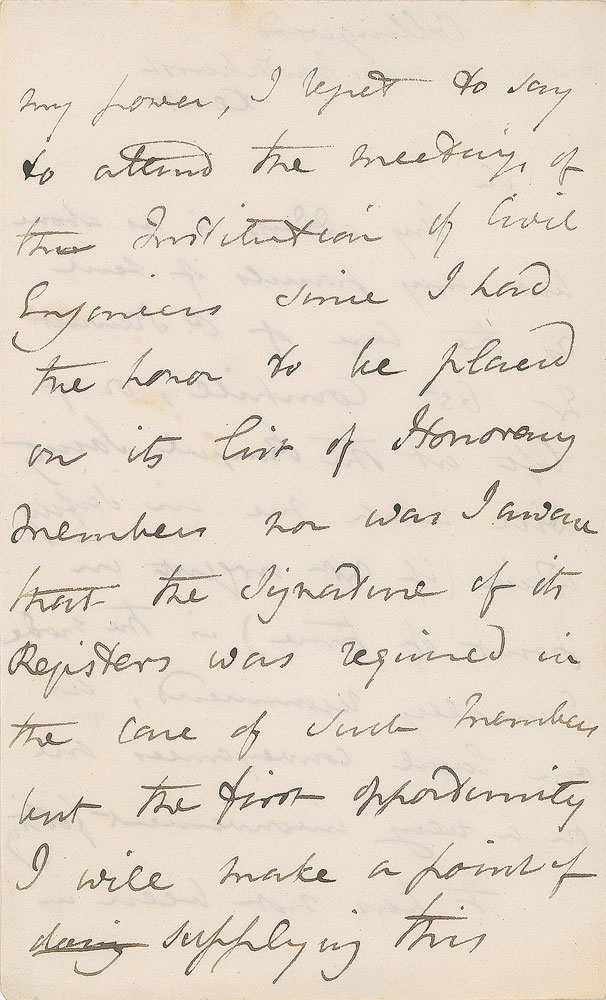 my power, I regret to say
to attend the meetings of
the Institution of Civil
Engineers since I had
the honor to be placed
on its list of Honorary
Members nor was I aware
that the signature of its
Registers was required in
the case of such Members
but the first opportunity
I will make a point of
doing supplying this